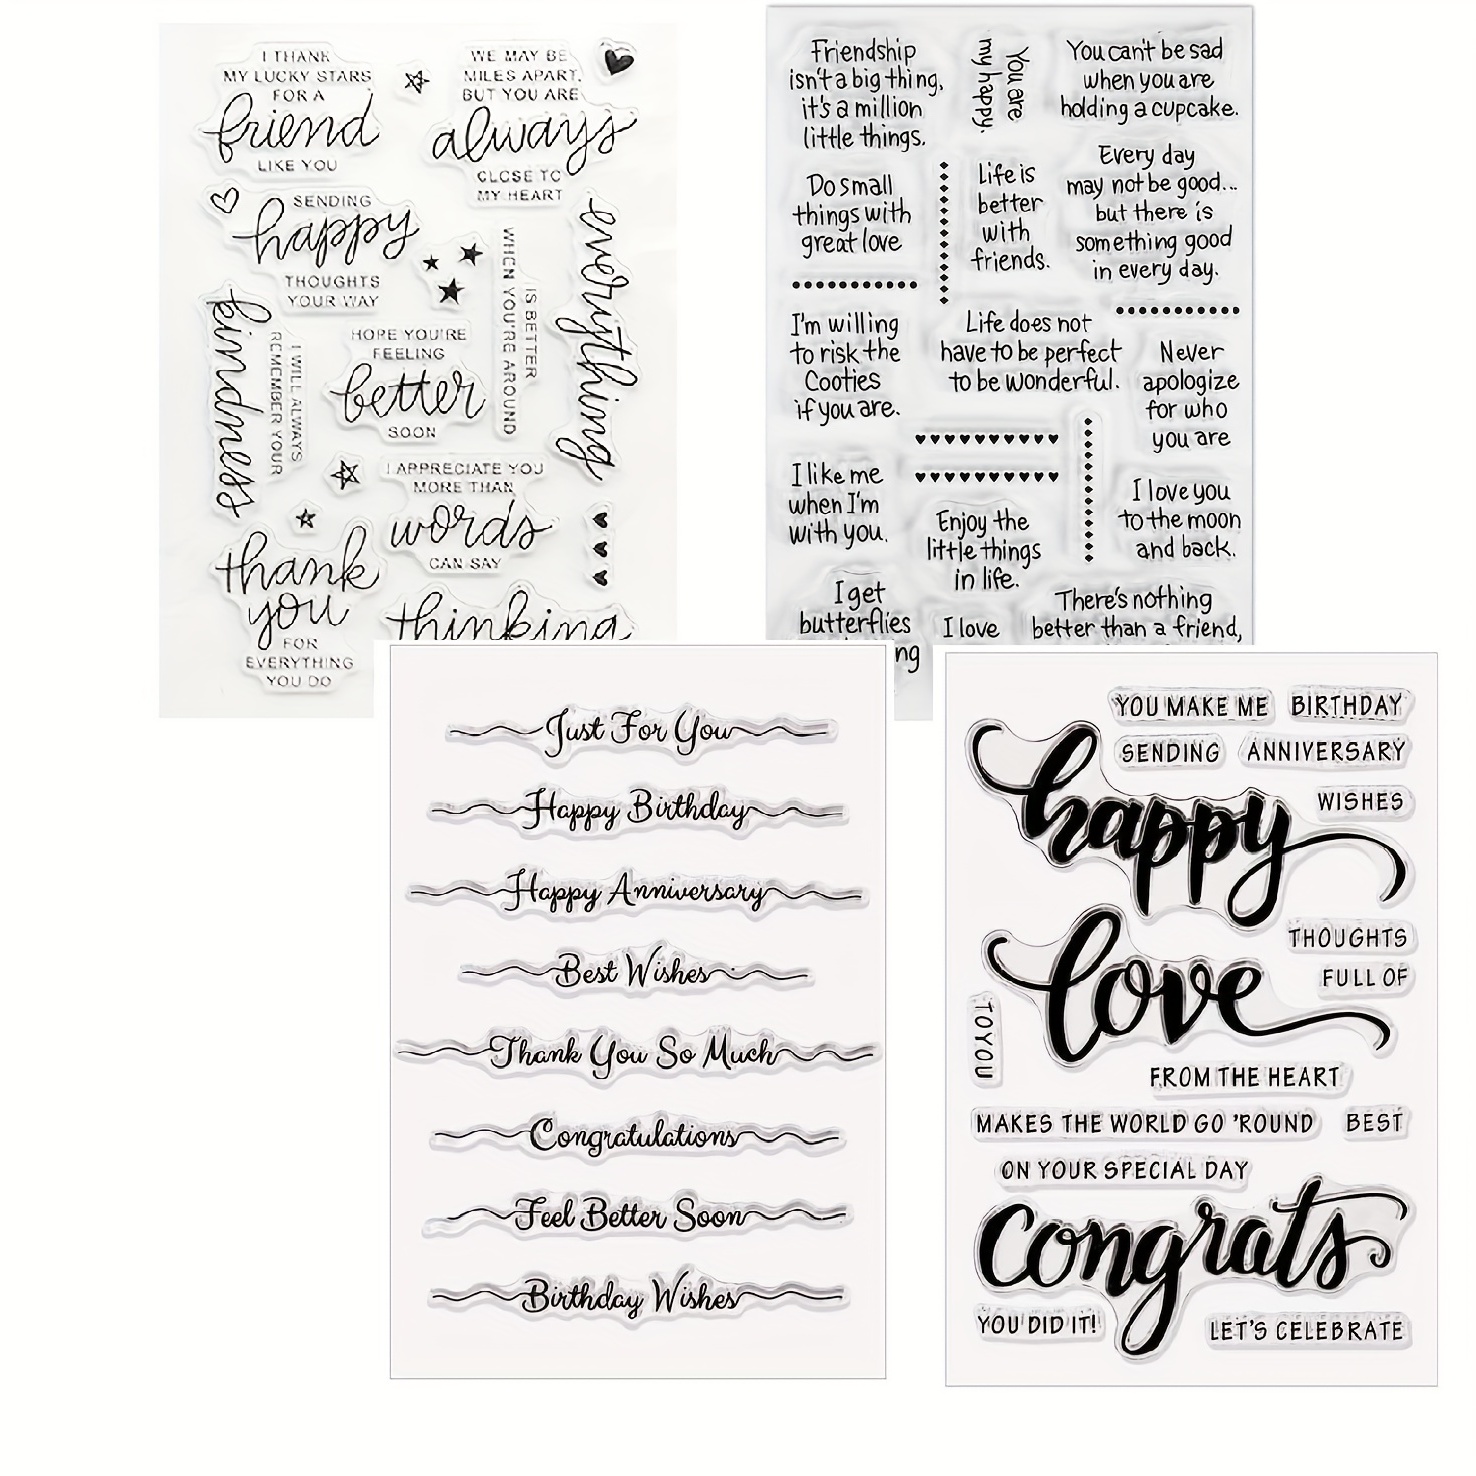 I THANK
MY LUCKY STARS
FOR A
friend
LIKE YOU
WE MAY BE
MILES APART,
BUT YOU ARE
always
CLOSE TO
MY HEART
SENDING
happy
THOUGHTS
YOUR WAY
everything
IS BETTER
WHEN YOU'RE AROUND
I WILL ALWAYS
REMEMBER YOUR
kindness
HOPE YOU'RE
FEELING
better
SOON
I APPRECIATE YOU
MORE THAN
words
CAN SAY
thank
you
FOR
EVERYTHING
YOU DO
thinking
Friendship
isn't a big thing,
it's a million
little things.
You are
my happy.
You can't be sad
when you are
holding a cupcake.
Do small
things with
great love
Life is
better
with
friends.
Every day
may not be good...
but there is
something good
in every day.
I'm willing
to risk the
Cooties
if you are.
Life does not
have to be perfect
to be wonderful.
Never
apologize
for who
you are
I like me
when I'm
with you.
Enjoy the
little things
in life.
I love you
to the moon
and back.
I get
butterflies
ng
I love
There's nothing
better than a friend,
Just For You
Happy Birthday
Happy Anniversary
Best Wishes
Thank You So Much
Congratulations
Feel Better Soon
Birthday Wishes
YOU MAKE ME BIRTHDAY
SENDING ANNIVERSARY
happy
WISHES
THOUGHTS
love
FULL OF
TO YOU
FROM THE HEART
MAKES THE WORLD GO 'ROUND BEST
ON YOUR SPECIAL DAY
congrats
YOU DID IT! LET'S CELEBRATE